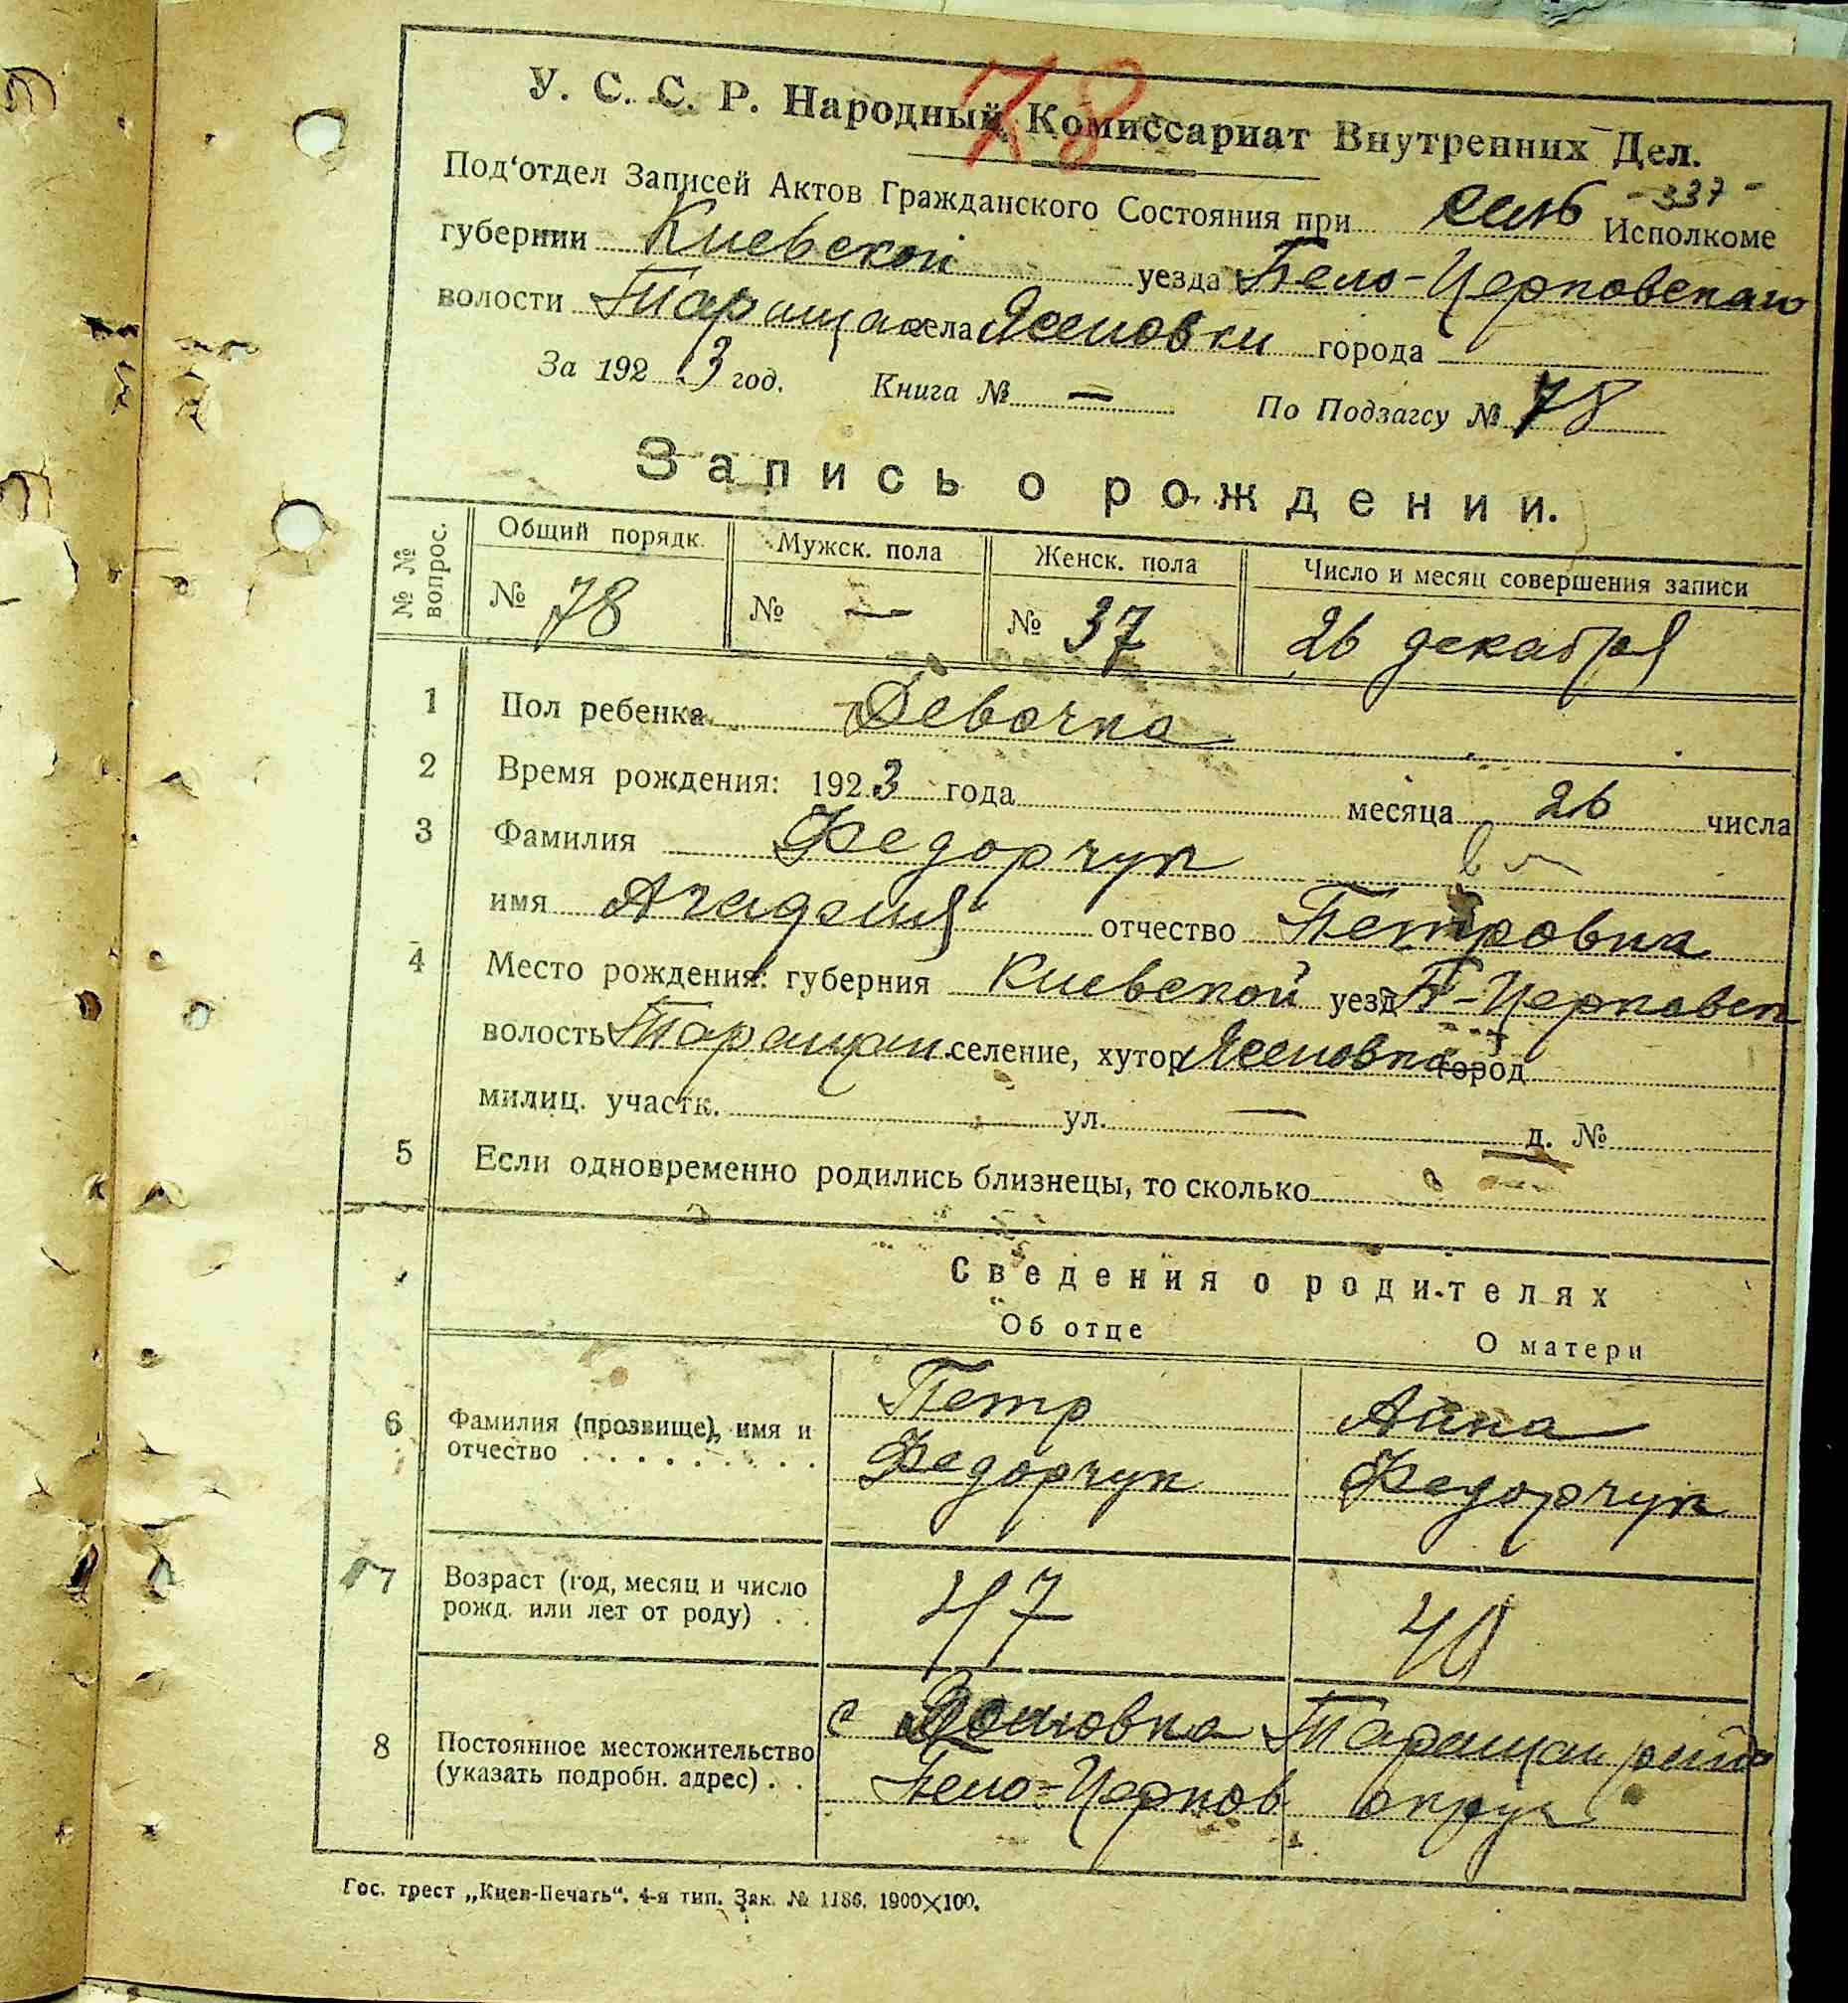 78
У. С. С. Р. Народный Комиссариат Внутренних Дел.
- 337 -
Под'отдел Записей Актов Гражданского Состояния при сель Исполкоме
губернии Киевской уезда Бело-Церковского
волости Таращан села Ясеновки города
За 1923 год. Книга № — По Подзагсу № 78
Запись о рождении.
№ № вопрос.
Общий порядк. Мужск. пола Женск. пола Число и месяц совершения записи
№ 78 № — № 37 26 декабря
1 Пол ребенка Девочка
2 Время рождения: 1923 года месяца 26 числа
3 Фамилия Федорчук
имя отчество Петровна
4 Место рождения: губерния Киевской уезд Б-Церковск
волость Таращан. селение, хутор Ясеновка город
милиц. участк. ул. — д. №
5 Если одновременно родились близнецы, то сколько
Сведения о родителях
Об отце О матери
6 Фамилия (прозвище), имя и отчество . . . . . . . . .
Петр Анна
Федорчук Федорчук
7 Возраст (год, месяц и число рожд. или лет от роду) . .
47 40
8 Постоянное местожительство (указать подробн. адрес) . .
с Ясеновка Таращан
Бело-Церков округ
Гос. трест „Киев-Печать“. 4-я тип. Зак. № 1186. 1900×100.